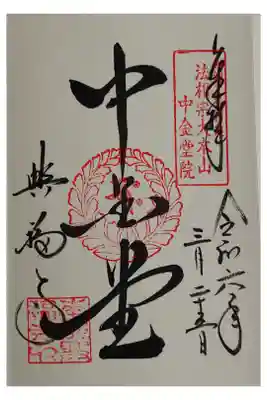 奉拝
法相宗大本山
中金堂院
令和六年
三月二十五日
中金堂
興福寺